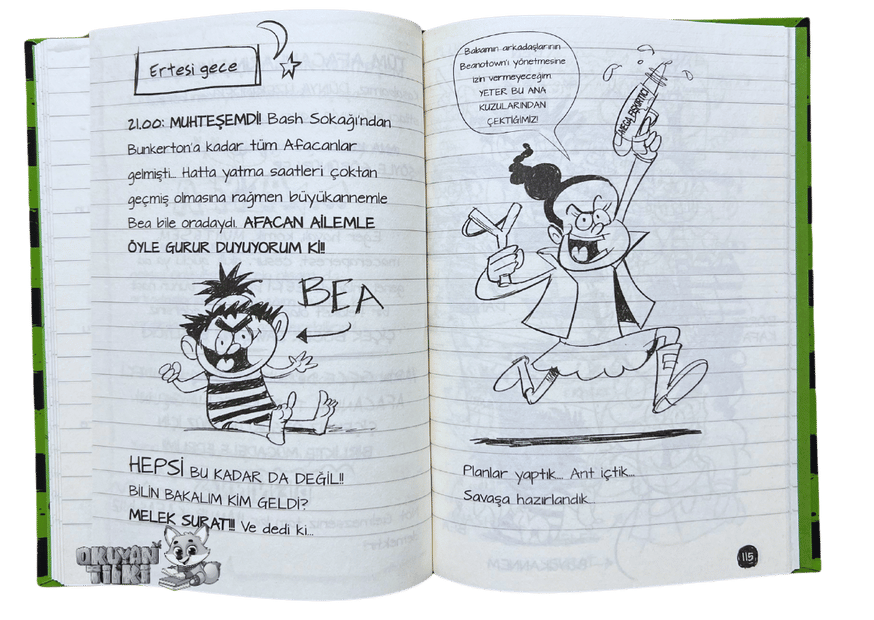 Ertesi gece
21.00: MUHTEŞEMDİ! Bash Sokağı'ndan
Bunkerton'a kadar tüm Afacanlar
gelmişti... Hatta yatma saatleri çoktan
geçmiş olmasına rağmen büyükannemle
Bea bile oradaydı. AFACAN AİLEMLE
ÖYLE GURUR DUYUYORUM Kİ!!
BEA
HEPSİ BU KADAR DA DEĞİL!!
BİLİN BAKALIM KİM GELDİ?
MELEK SURAT!!! Ve dedi ki...
OKUYAN
TİLKİ
Babamın arkadaşlarının
Beanotown'ı yönetmesine
izin vermeyeceğim.
YETER BU ANA
KUZULARINDAN
ÇEKTİĞİMİZ!
MEGA FIŞKIRTICI
Planlar yaptık... Ant içtik...
Savaşa hazırlandık.
115